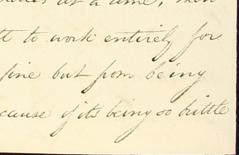 at a time, then
to work entirely for
fine but from being
cause of its being so brittle